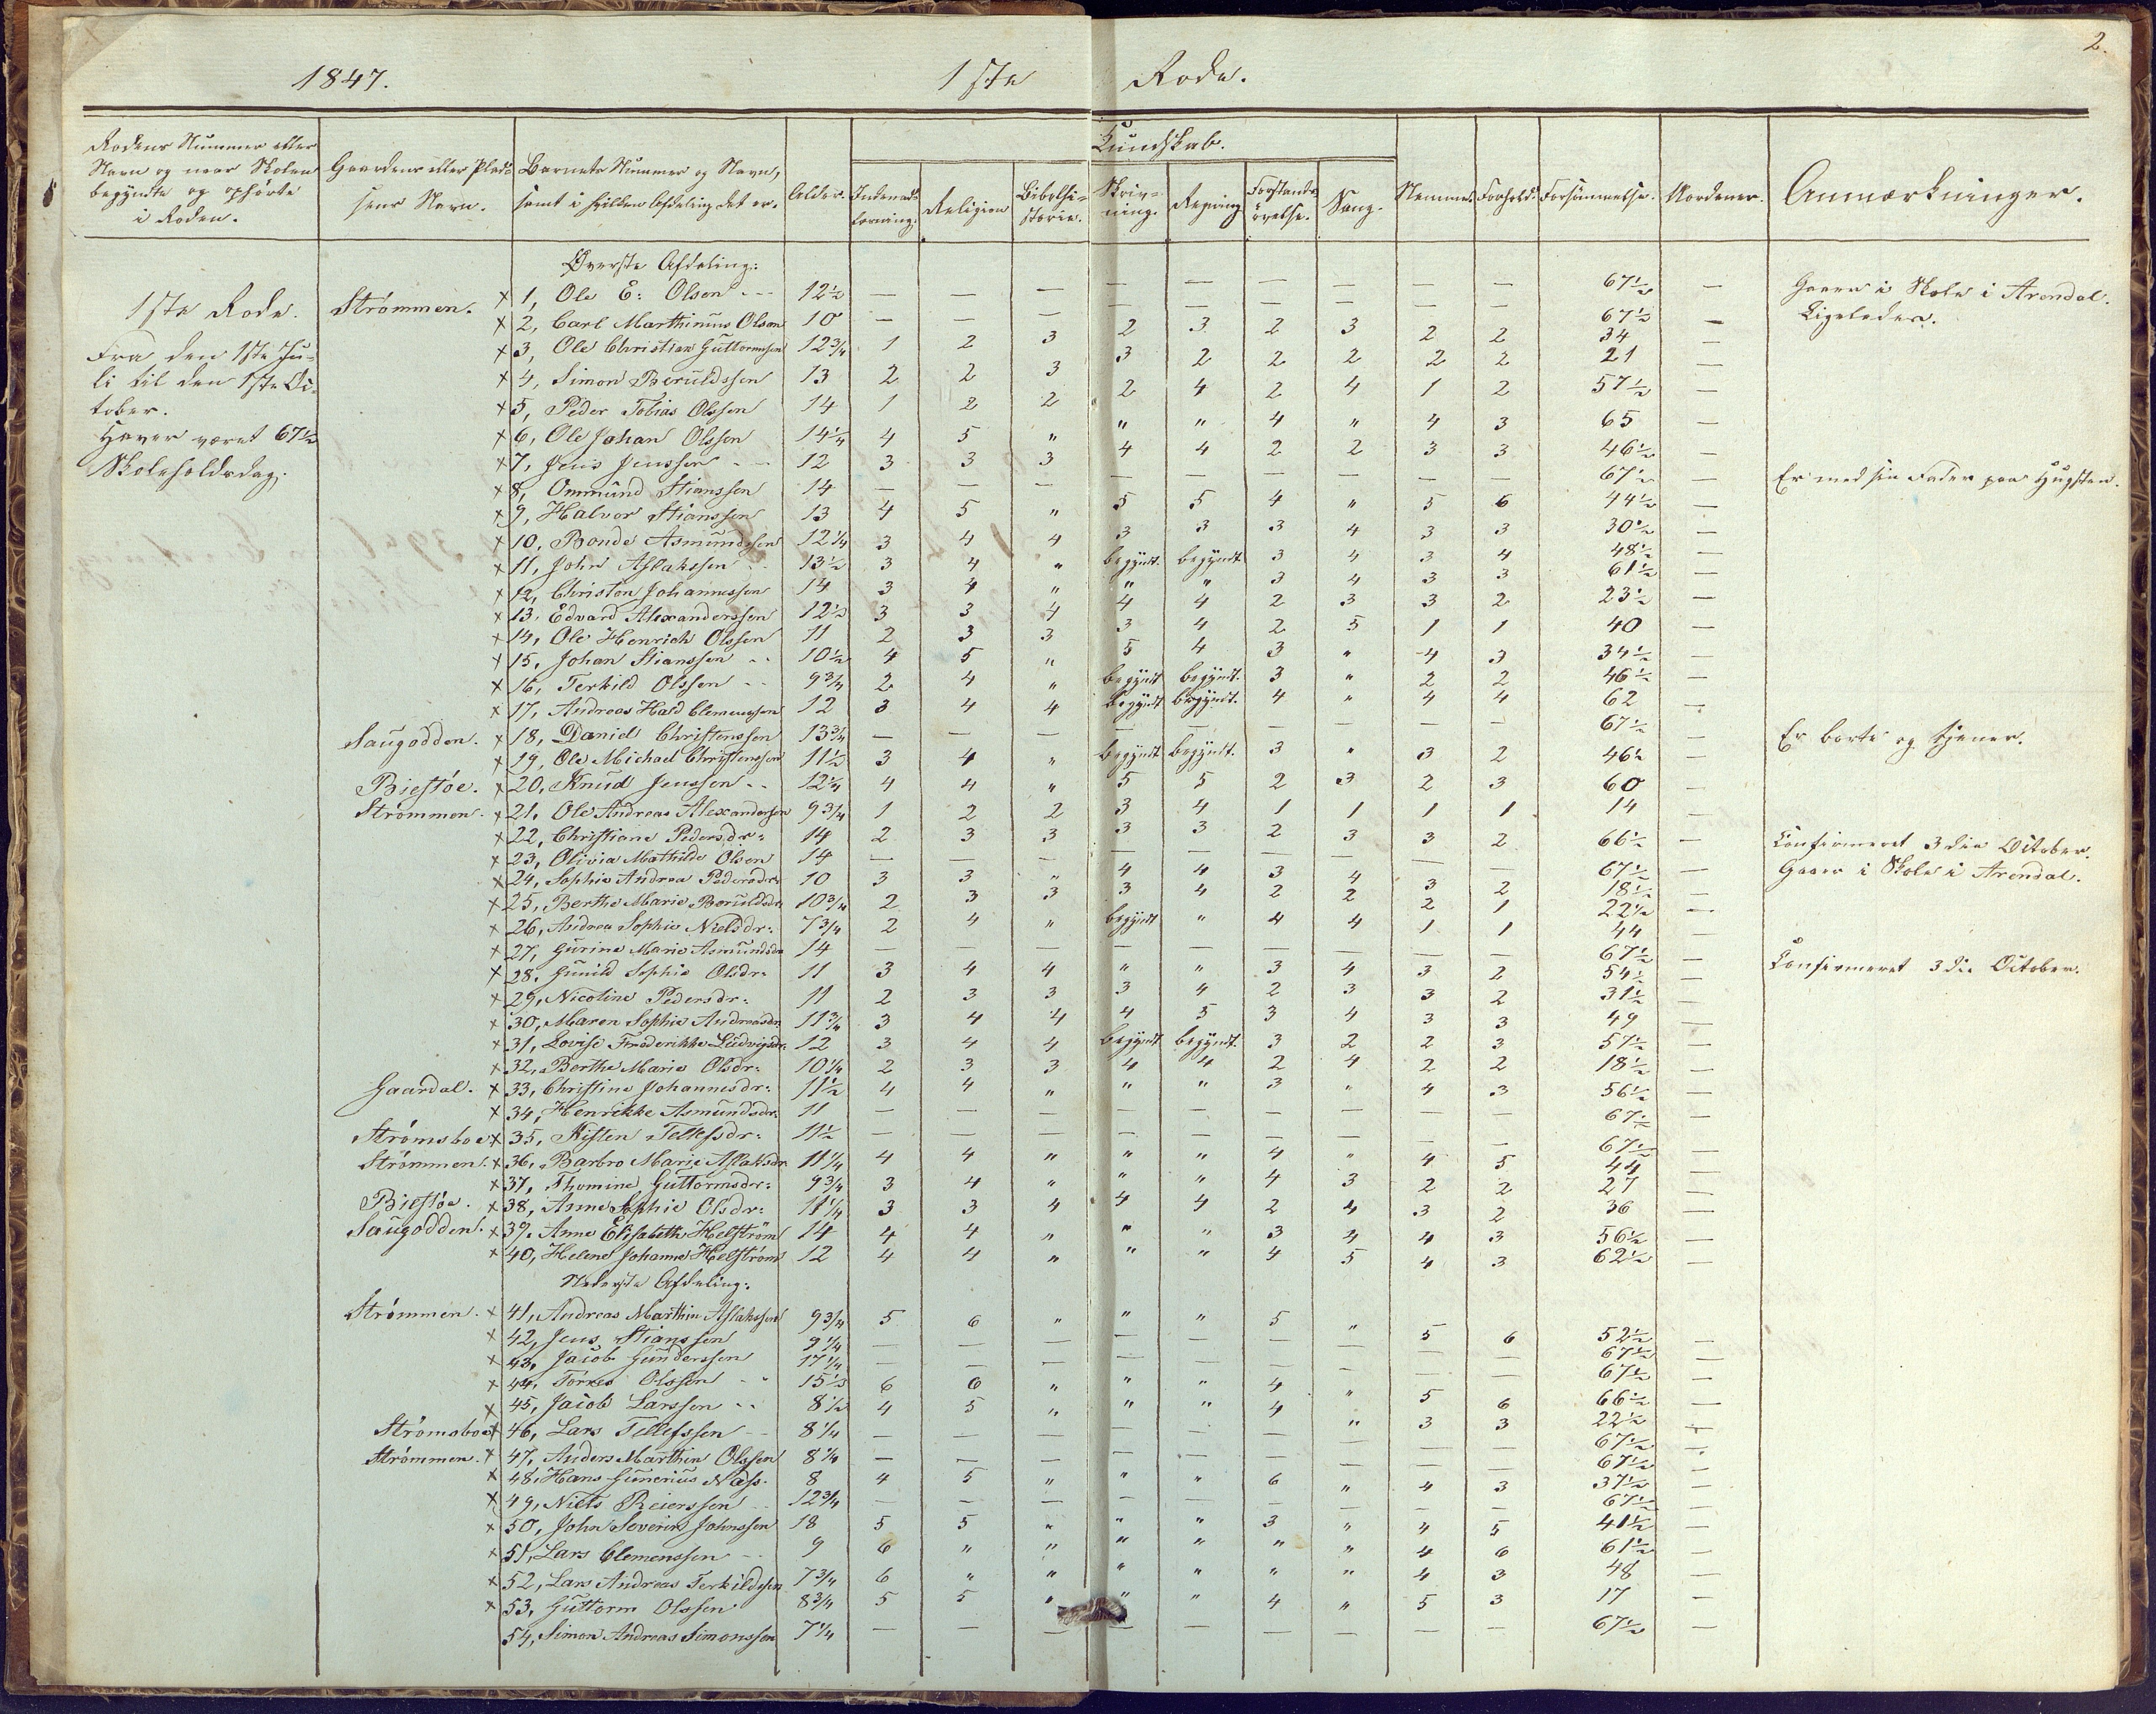 2.
1847. 1ste Rode.
Rodens Nummer eller Navn og naar Skolen begyndte og ophørte i Roden. | Gaardens eller Pladsens Navn. | Barnets Nummer og Navn, samt i hvilken Afdeling det er. | Alder. | Kundskab. Indenadslæsning. | Religion | Bibelhistorie. | Skrivning. | Regning | Forstandsøvelse. | Sang. | Nemme. | Forhold. | Forsømmelse. | Anmærkninger.
Øverste Afdeling:
1ste Rode. Strømmen. x 1, Ole E: Olsen 12½ — — — — — — — — — 67½ — Gaaer i Skole i Arendal.
x 2, Carl Marthinius Olsen 10 — — — — — — — — — 67½ — Ligeledes.
Fra den 1ste Ju- x 3, Ole Christian Guttormsen 12¾ 1 2 3 2 3 2 3 2 2 34 —
li til den 1ste Oc- x 4, Simon Beruldssen 13 2 2 3 3 2 2 2 2 2 21 —
tober. x 5, Peder Tobias Olssen 14 1 2 2 2 4 2 4 1 2 57½ —
Haver været 67½ x 6, Ole Johan Olssen 14¼ 4 5 " " " 4 " 4 3 65 —
Skoleholdsdag. x 7, Jens Jenssen 12 3 3 3 4 4 2 2 3 3 46½ —
x 8, Ommund Stianssen 14 — — — — — — — — — 67½ — Er med sin Fader paa
x 9, Halvor Stianssen 13 4 5 " 5 5 4 " 5 6 44½ —
x 10, Bonde Asmundssen 12¼ 3 4 4 3 3 3 4 3 3 30½ —
x 11, John Aslakssen 13½ 3 4 " begyndt. begyndt 3 4 3 4 48½ —
x 12, Christen Johannessen 14 3 4 " " " 3 4 3 3 61½ —
x 13, Edvard Alexanderssen 12½ 3 3 4 4 4 2 3 3 2 23½ —
x 14, Ole Henrich Olssen 11 2 3 3 3 4 2 5 1 1 40 —
x 15, Johan Stianssen 10½ 4 5 " 5 4 3 " 4 3 34½ —
x 16, Terkild Olssen 9¾ 2 4 " begyndt begyndt. 3 " 2 2 46½ —
x 17, Andreas Hald Clemenssen 12 3 4 4 begyndt begyndt. 4 " 4 4 62 —
Saugodden. x 18, Daniel Christenssen 13¾ — — — — — — — — — 67½ — Er borte og tjener.
x 19, Ole Michael Christenssen 11½ 3 4 " begyndt begyndt. 3 " 3 2 46½ —
Biestøe. x 20, Knud Jenssen 12¼ 4 4 " 5 5 2 3 2 3 60 —
Strømmen. x 21, Ole Andreas Alexandersen 9¾ 1 2 2 3 4 1 1 1 1 14
x 22, Christiane Pedersdr: 14 2 3 3 3 3 2 3 3 2 66½ — Confirmeret 3die October.
x 23, Olivia Mathilde Olsen 14 — — — — — — — — 67½ — Gaaer i Skole i Arendal.
x 24, Sophie Andrea Pedersdr: 10 3 3 " 4 4 3 4 3 2 18½ —
x 25, Berthe Marie Beruldsdr 10¾ 2 3 3 3 4 2 2 2 1 22½ —
x 26, Andrea Sophie Nielsdr: 7¾ 2 4 " begyndt " 4 4 1 1 44 —
x 27, Gurine Marie Asmundsdr 14 — — — — — — — — — 67½ — Confirmeret 3die October.
x 28, Gunild Sophie Olsdr: 11 3 4 4 " " 3 4 3 2 54½ —
x 29, Nicoline Pedersdr: 11 2 3 3 3 4 2 3 3 2 31½ —
x 30, Maren Sophie Andreasdr 11¾ 3 4 4 4 5 3 4 3 3 49 —
x 31, Lovise Frederikke Ludvigsdr: 12 3 4 4 begyndt begyndt. 3 2 2 3 57½ —
x 32, Berthe Marie Olsdr: 10¼ 2 3 3 4 4 2 4 2 2 18½ —
Gaardal. x 33, Christine Johannesdr: 11½ 4 4 " " " 3 " 4 3 56½ —
x 34, Henrikke Asmundsdr: 11 — — — — — — — — — 67½ —
Strømsboe x 35, Kisten Tellefsdr: 11½ — — — — — — — — — 67½ —
Strømmen. x 36, Barbro Marie Aslaksdr 11¼ 4 4 " " " 4 " 4 5 44 —
x 37, Thomine Guttormsdr: 9¾ 3 4 " " " 4 3 2 2 27 —
Biestøe. x 38, Anne Sophie Olsdr: 11¼ 3 3 4 4 4 2 4 3 2 36 —
Saugodden. x 39, Anne Elisabeth Helstrøm 14 4 4 " " " 3 4 4 3 56½ —
x 40, Helene Johanne Helstrøm 12 4 4 " " " 4 5 4 3 62½ —
Nederste Afdeling:
Strømmen. x 41, Andreas Marthin Aslakssen 9¾ 5 6 " " " 5 " 5 6 52½ —
x 42, Jens Stianssen 9¼ — — — — — — — — — 67½ —
x 43, Jacob Gunderssen 17¼ — — — — — — — — — 67½ —
x 44, Torres Olssen 15½ 6 6 " " " 4 " 5 6 66½ —
x 45, Jacob Larssen 8½ 4 5 " " " 4 " 3 3 22½ —
Strømsboe x 46, Lars Tellefssen 8¼ — — — — — — — — — 67½ —
Strømmen. x 47, Anders Marthin Olssen 8¼ — — — — — — — — — 67½ —
x 48, Hans Gunerius Næss. 8 4 5 " " " 6 " 4 3 37½ —
x 49, Niels Reierssen 12¾ — — — — — — — — — 67½ —
x 50, John Severin Johnssen 18 5 5 " " " 3 " 4 5 41½ —
x 51, Lars Clemenssen 9 6 " " " " " " 4 6 61½ —
x 52, Lars Andreas Terkildssen 7¾ 6 " " " " " " 4 3 48 —
x 53, Guttorm Olssen 8¾ 5 5 " " " 4 " 5 3 17 —
54, Simon Andreas Simonssen 7¼ — — — — — — — — — 67½ —